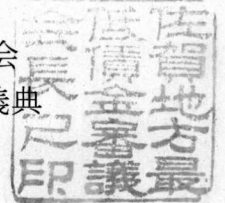 会
義典
佐賀地方最
低賃金審議
会長之印